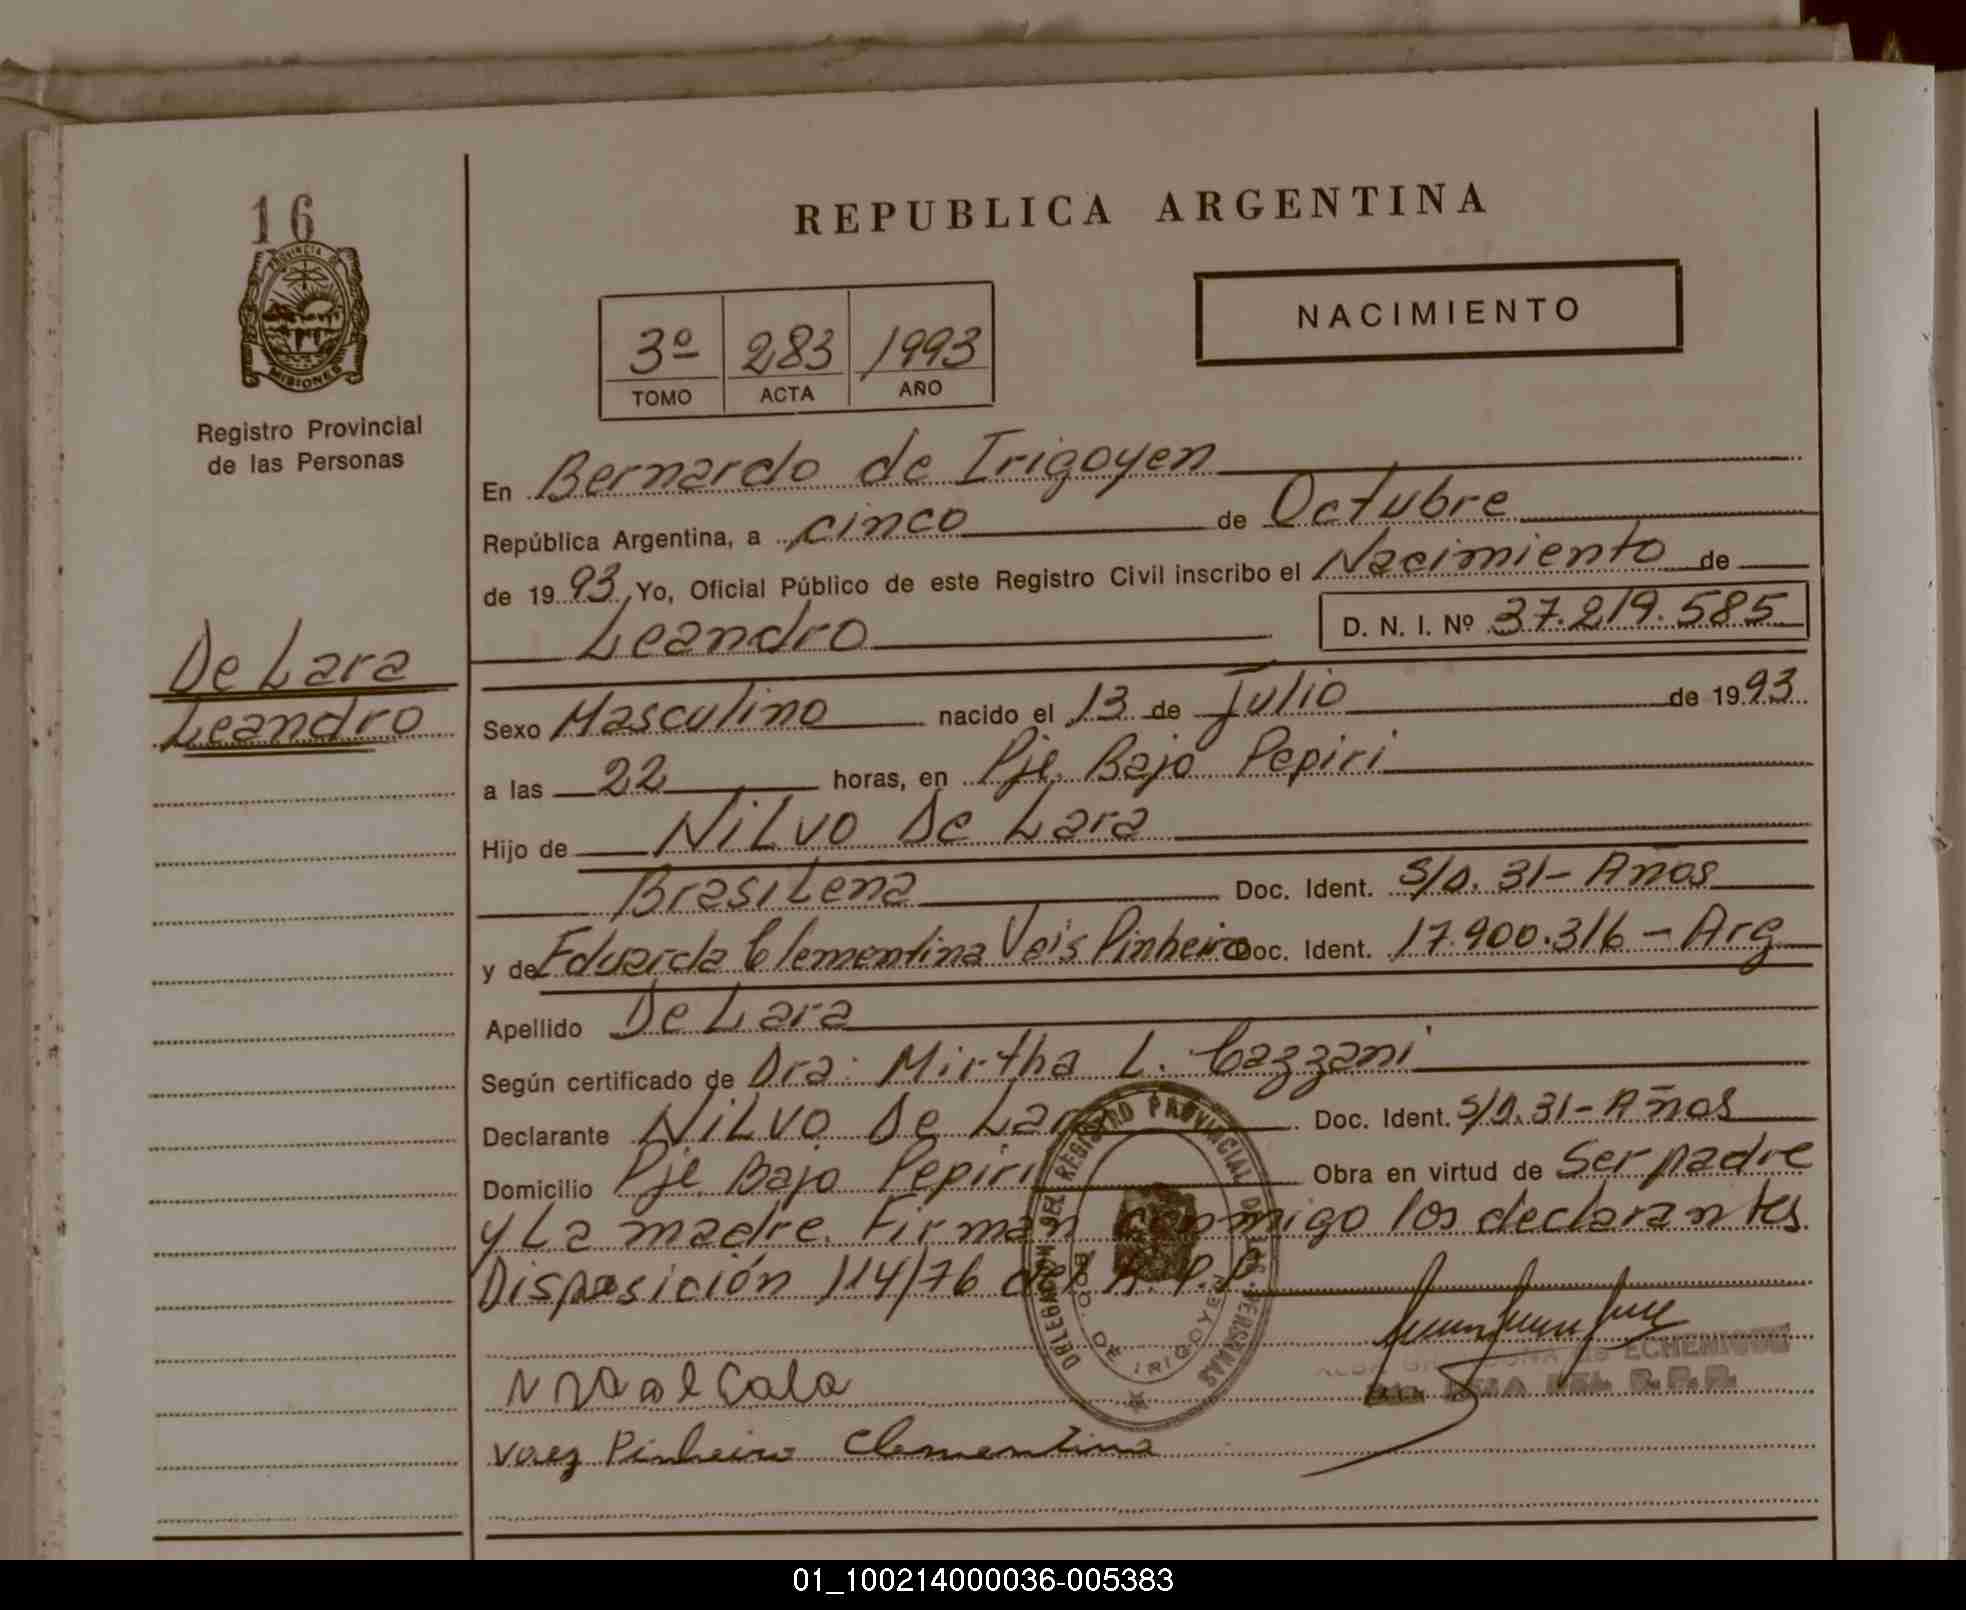 16
PROVINCIA DE
MISIONES
Registro Provincial
de las Personas
De Lara
Leandro
REPUBLICA ARGENTINA
3º 283 1993
TOMO ACTA AÑO
NACIMIENTO
En Bernardo de Irigoyen
República Argentina, a cinco de Octubre
de 1993 Yo, Oficial Público de este Registro Civil inscribo el Nacimiento de
Leandro D. N. I. Nº 37.219.585
Sexo Masculino nacido el 13 de Julio de 1993
a las 22 horas, en Pje. Bajo Pepiri
Hijo de Nilvo De Lara
Brasileña Doc. Ident. S/D. 31-Años
y de Eduarda Clementina Vais Pinheiro Doc. Ident. 17.900.316 - Arg
Apellido De Lara
Según certificado de Dra: Mirtha L. Cazzani
Declarante Nilvo De Lara Doc. Ident. S/D. 31-Años
Domicilio Pje Bajo Pepiri Obra en virtud de Ser padre
y La madre. Firman conmigo los declarantes
Disposición 114/76 del R.P.P.
DELEGACION DEL REGISTRO PROVINCIAL DE LAS PERSONAS
BDO. DE IRIGOYEN
de ECHENIQUE
DEL R.P.P.
Pinheiro Clementina
01_100214000036-005383